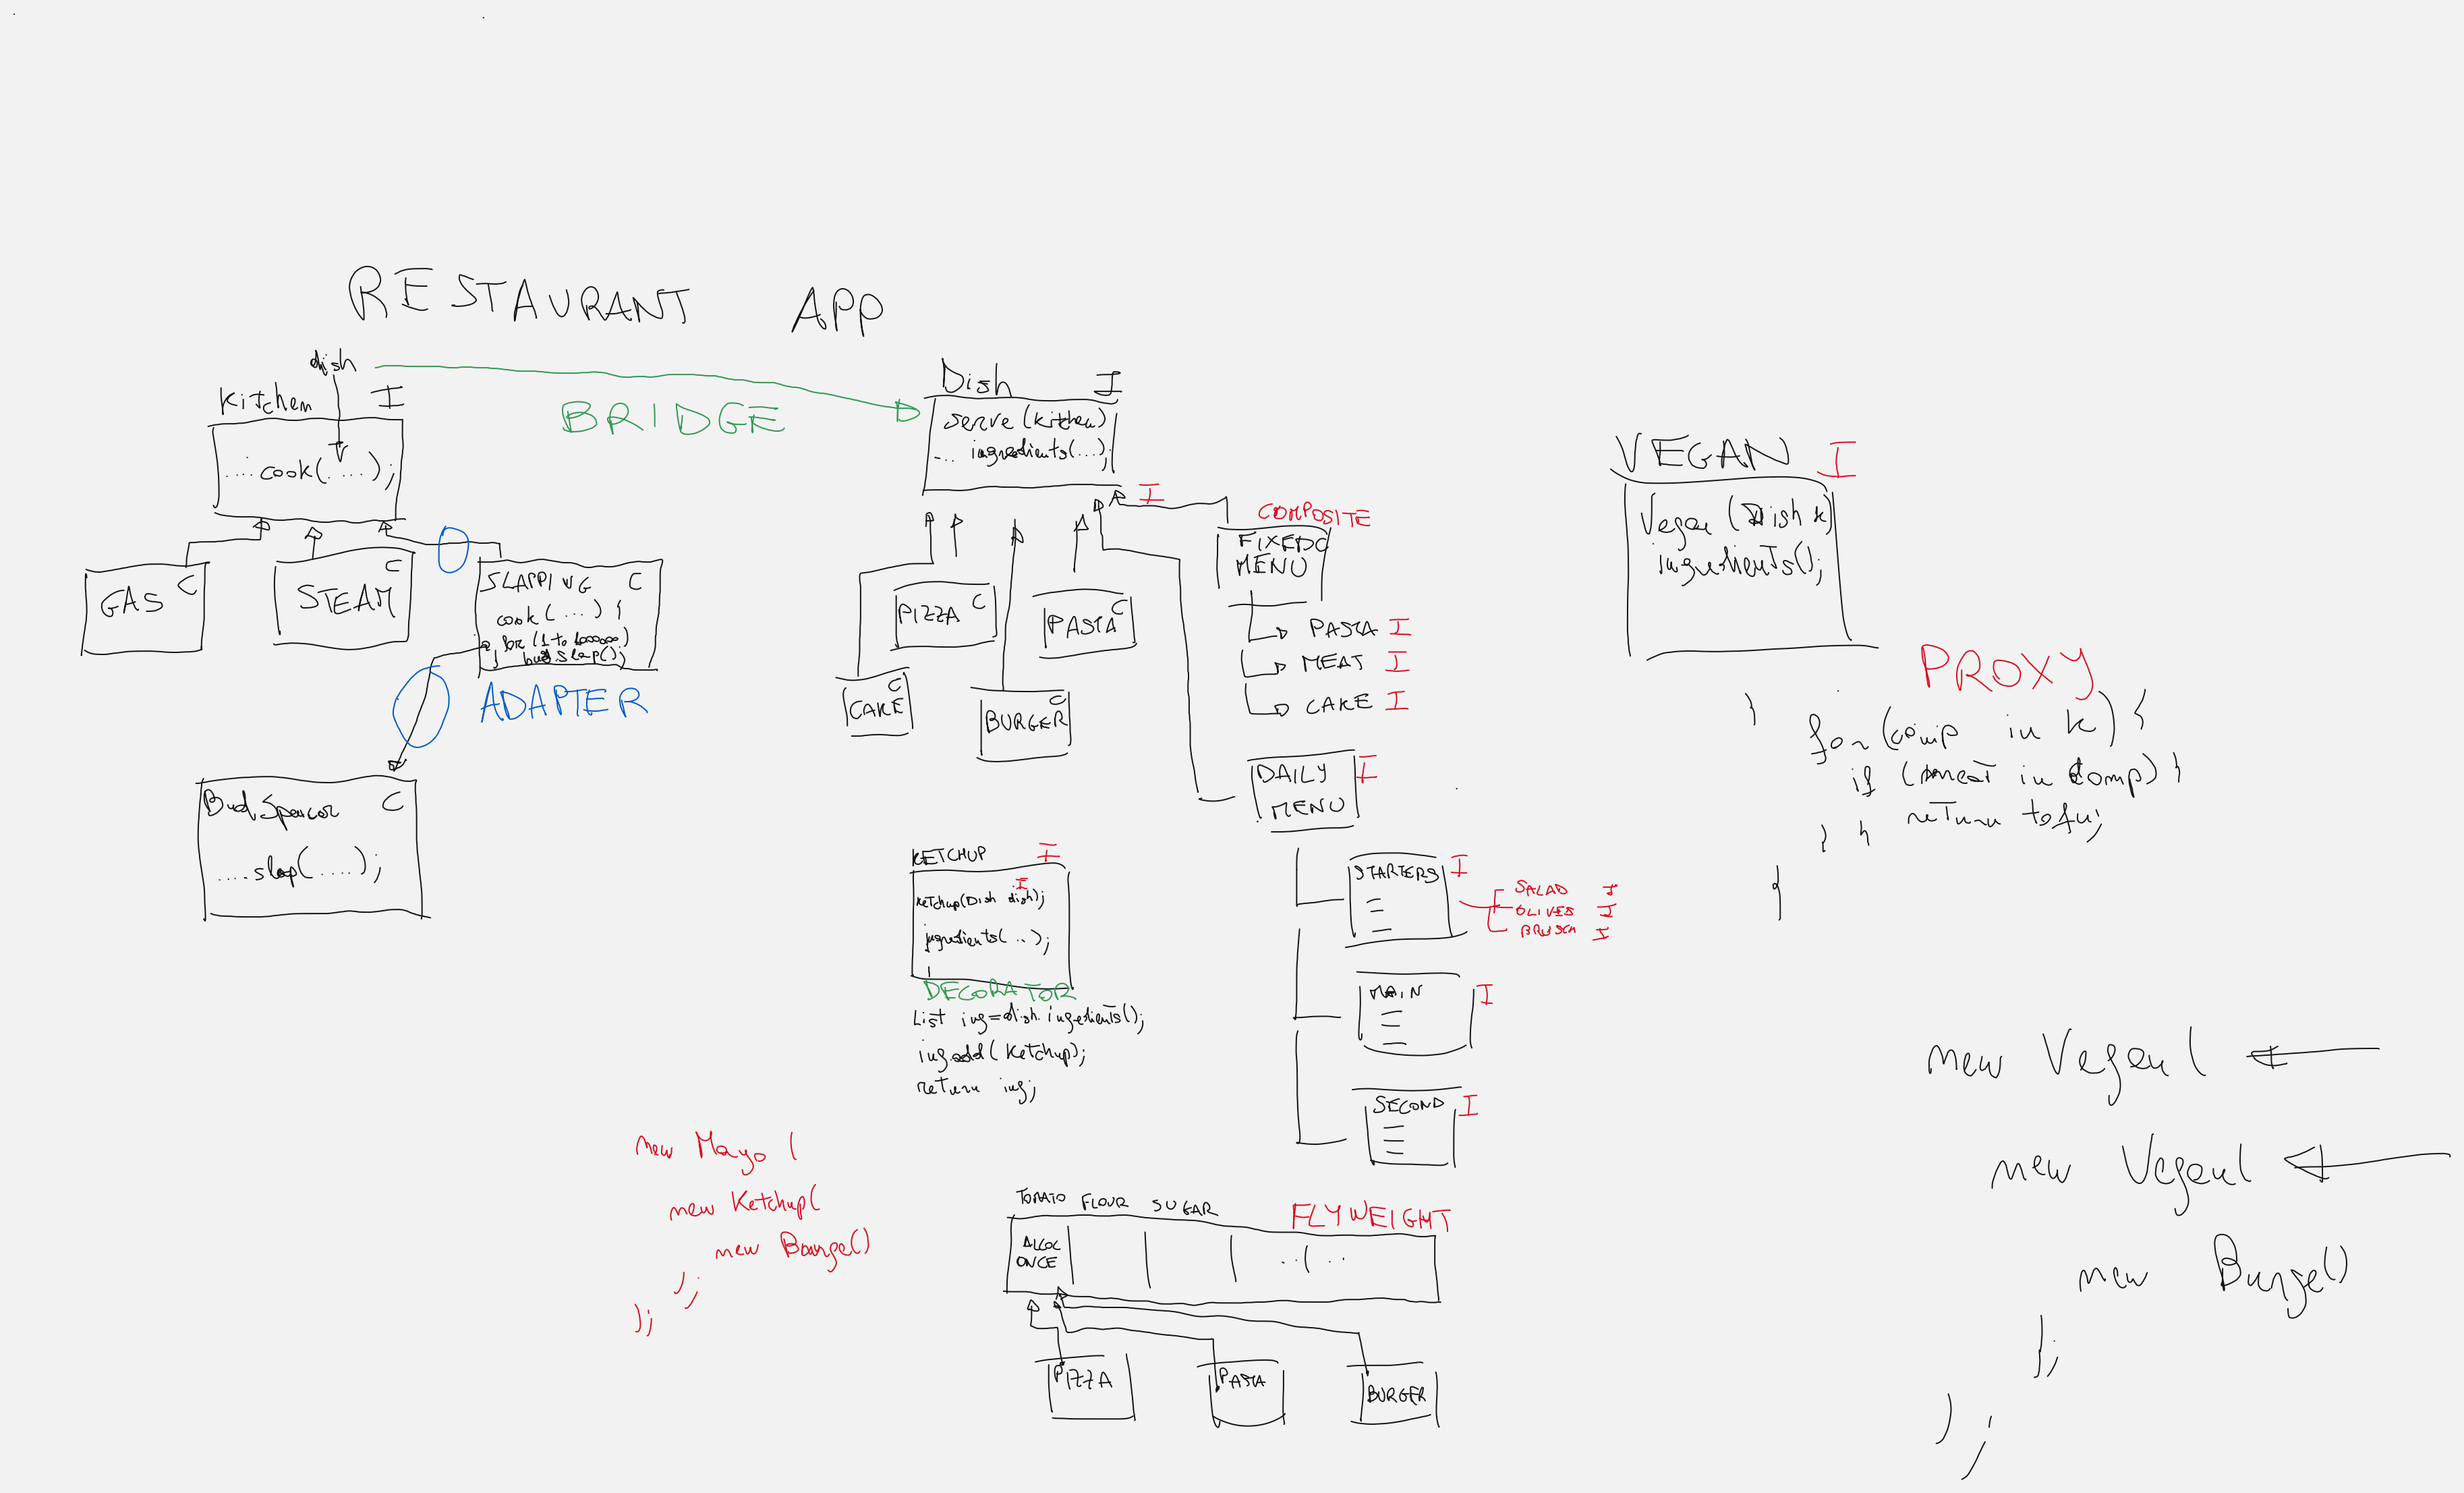 RESTAURANT APP
dish
Kitchen I
.... cook(.....);
BRIDGE
GAS C
STEAM C
SLAPPING C
cook(...) {
for (1 to 1000000)
bud.slap();
}
ADAPTER
BudSpencer C
....slap(....);
Dish I
serve(kitchen)
... ingredients(...);
I
PIZZA C
PASTA C
CAKE C
BURGER C
COMPOSITE
FIXED C
MENU
PASTA I
MEAT I
CAKE I
DAILY I
MENU
STARTERS I
SALAD I
OLIVES I
BRUSCH I
MAIN I
SECOND I
KETCHUP I
I
Ketchup(Dish dish);
ingredients(..);
DECORATOR
List ing=dish.ingedients();
ing.add(Ketchup);
return ing;
new Mayo (
new Ketchup(
new Burge()
);
);
TOMATO FLOUR SUGAR
FLYWEIGHT
ONCE
..(..
PIZZA
PASTA
BURGER
VEGAN I
Vegan (Dish k)
ingredients();
PROXY
}
for(comp in k) {
if (meat in comp) }
return tofu;
} }
{
new Vegan(
new Vegan(
new Burge()
);
);